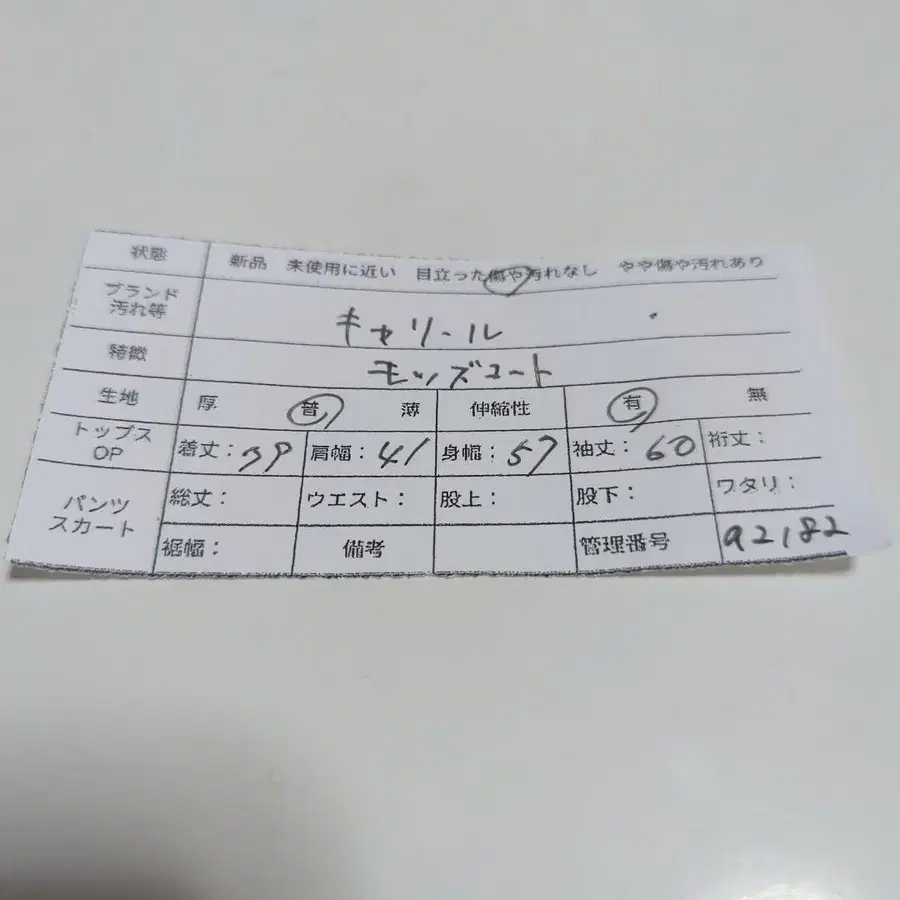 状態 新品 未使用に近い 目立った傷や汚れなし やや傷や汚れあり
ブランド
汚れ等
キャリール
特徴 モッズコート
生地 厚 普 薄 伸縮性 有 無
トップス
OP
着丈: 79 肩幅: 41 身幅: 57 袖丈: 60 裄丈:
パンツ
スカート
総丈: ウエスト: 股上: 股下: ワタリ:
裾幅: 備考 管理番号 a2182